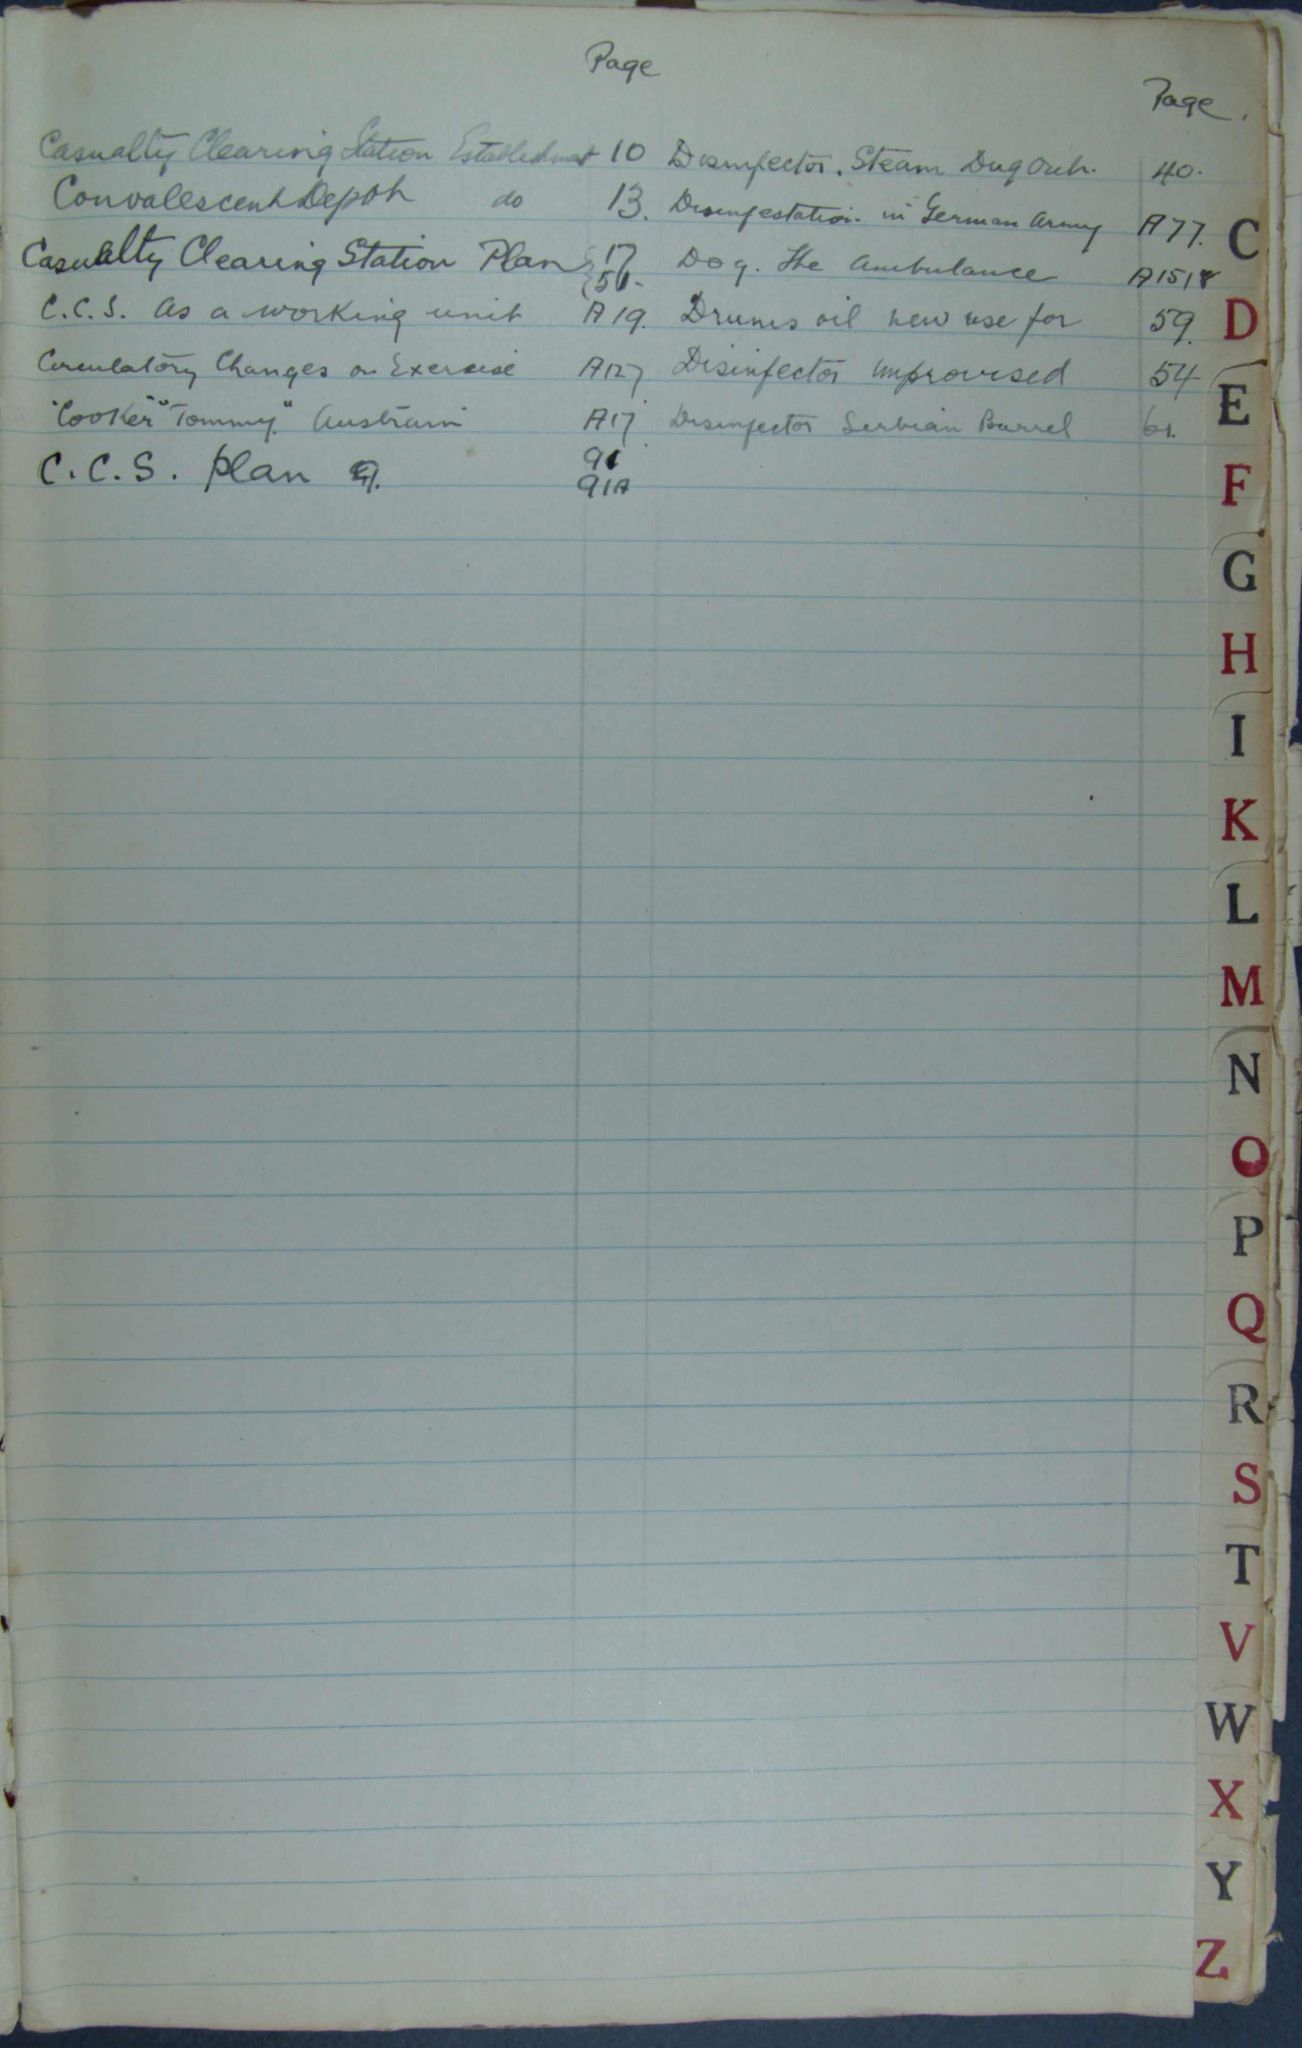 Page
Page.
Casualty Clearing Station Establishment 10
Convalescent Depot do 13.
Casualty Clearing Station Plan 17
56.
C.C.S. as a working unit A19.
Circulatory Changes on Exercise A127
"Cooker" "Tommy" Austrian A17
C.C.S. plan 91
91A
Disinfector. Steam Dug Out. 40.
Disinfestation in German Army A77.
Dog. The Ambulance
Drums oil new use for 59.
Disinfector improvised 54
Disinfector Serbian Barrel 61.
C
D
E
F
G
H
I
K
L
M
N
O
P
Q
R
S
T
V
W
X
Y
Z